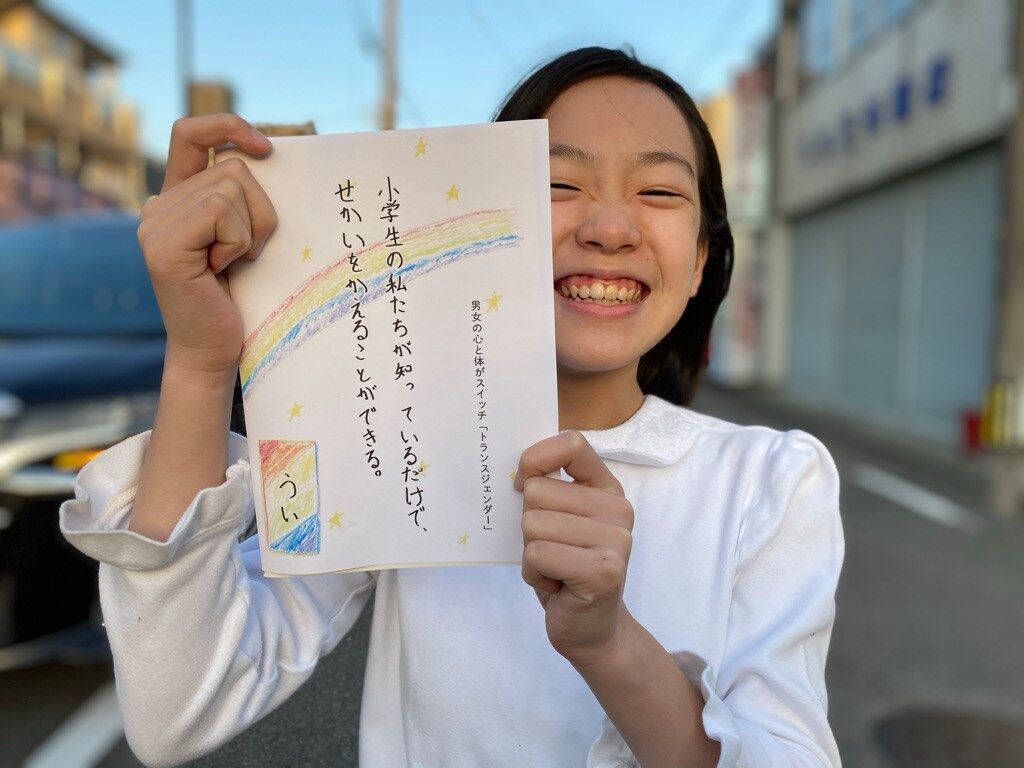 男女の心と体がスイッチ「トランスジェンダー」
小学生の私たちが知っているだけで、
せかいをかえることができる。
うい